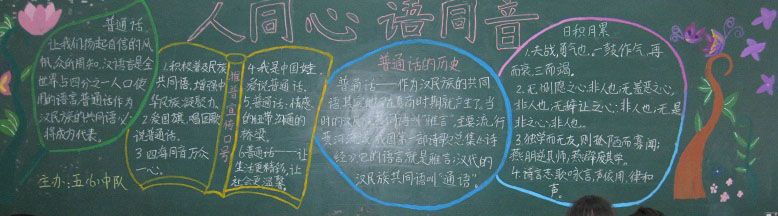 人同心 语同音
普通话,
让我们扬起自信的风
帆
世界占四分之一人口使
用的语言,普通话作为
汉民族的共同语,必
将成为代表。
主办:五(6)中队
推普宣传口号
1.积极普及民族
共同语,增强中
华民族凝聚力。
2.爱国旗,唱国歌,
说普通话。
3.四海同音,万众
一心。
4.我是中国娃,
爱说普通话。
5.普通话:情感
的纽带,沟通的
桥梁。
6.普通话——让
生活更精彩,让
社会更温馨。
普通话的历史
普通话——作为汉民族的共同
语,其实
当
时的汉民族共同语叫“雅言”,主要流行
黄河流域,我国第一部诗歌总集《诗
经》的语言就是雅言;汉代的
汉民族共同语叫“通语”。
日积月累
1.夫战,勇气也。一鼓作气,再
而衰,三而竭。
2.无恻隐之心,非人也;无羞恶之心,
非人也;无辞让之心,非人也;无是
非之心,非人也。
3.独学而无友,则孤陋而寡闻;
燕朋逆其师,燕辟废其学。
4.诗言志,歌咏言,声依永,律和
声。